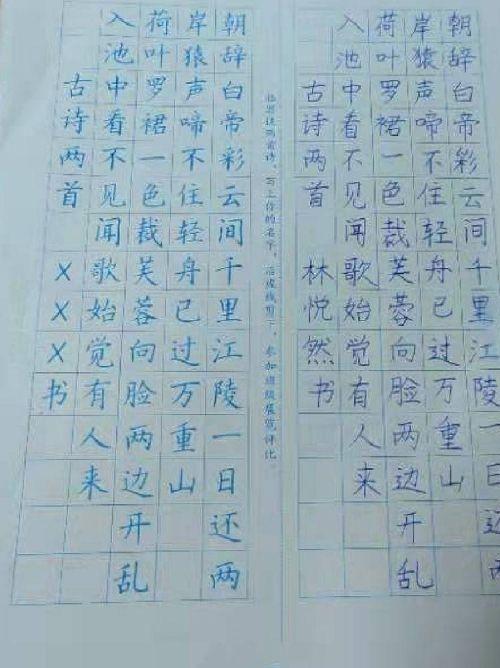 朝辞白帝彩云间千里江陵一日还两
岸猿声啼不住轻舟已过万重山
荷叶罗裙一色裁芙蓉向脸两边开乱
入池中看不见闻歌始觉有人来
古诗两首林悦然书
临写这两首诗，写上你的名字，沿虚线剪下，参加班级展览评比。
朝辞白帝彩云间千里江陵一日还两
岸猿声啼不住轻舟已过万重山
荷叶罗裙一色裁芙蓉向脸两边开乱
入池中看不见闻歌始觉有人来
古诗两首XXX书